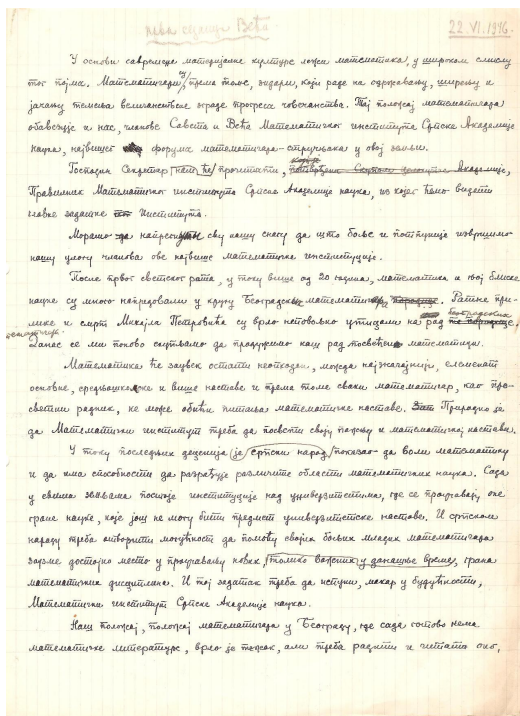 прва седница Већа
22.VI.1946.
У основи савремене материјалне културе лежи математика, у широком смислу
тог појма. Математичари су, према томе, зидари, који раде на одржавању, ширењу и
јачању темеља величанствене зграде прогреса човечанства. Тај положај математичара
обавезује и нас, чланове Савета и Већа Математичког института Српске Академије
наука, највишег форума математичара-стручњака у овој земљи.
Господин Секретар нам ће прочитати, Академије,
Правилник Математичког института Српске Академије наука, из којег ћемо видети
главне задатке Института.
Морамо да напрегнути сву нашу снагу да што боље и потпуније извршимо
нашу улогу чланова ове највише математичке институције.
После првог светског рата, у току више од 20 година, математика и њој блиске
науке су много напредовали у кругу Београдских математичара. Ратне при-
лике и смрт Михајла Петровића су врло неповољно утицали на рад београдских
математичара.
Данас се ми поново скупљамо да продужимо наш рад посвећен математици.
Математика ће заувек остати неопходан, можда најзначајнији, елеменат
основне, средњошколске и више наставе и према томе сваки математичар, као про-
светни радник, не може обићи питања математичке наставе. Природно је
да Математички институт треба да посвети своју пажњу и математичкој настави.
У току последњих деценија је српски народ показао да воли математику
и да има способности да разрађује различите области математичких наука. Сада
у свима земљама постоје институције над универзитетима, где се проучавају оне
гране науке, које још не могу бити предмет универзитетске наставе. И српском
народу треба отворити могућности да помоћу својих бољих младих математичара
заузме достојно место у проучавању нових, толико важних у данашње време, грана
математичких дисциплина. И тај задатак треба да испуни, макар у будућности,
Математички институт Српске Академије наука.
Наш положај, положај математичара у Београду, где сада готово нема
математичке литературе, врло је тежак, али треба радити и читати оно,